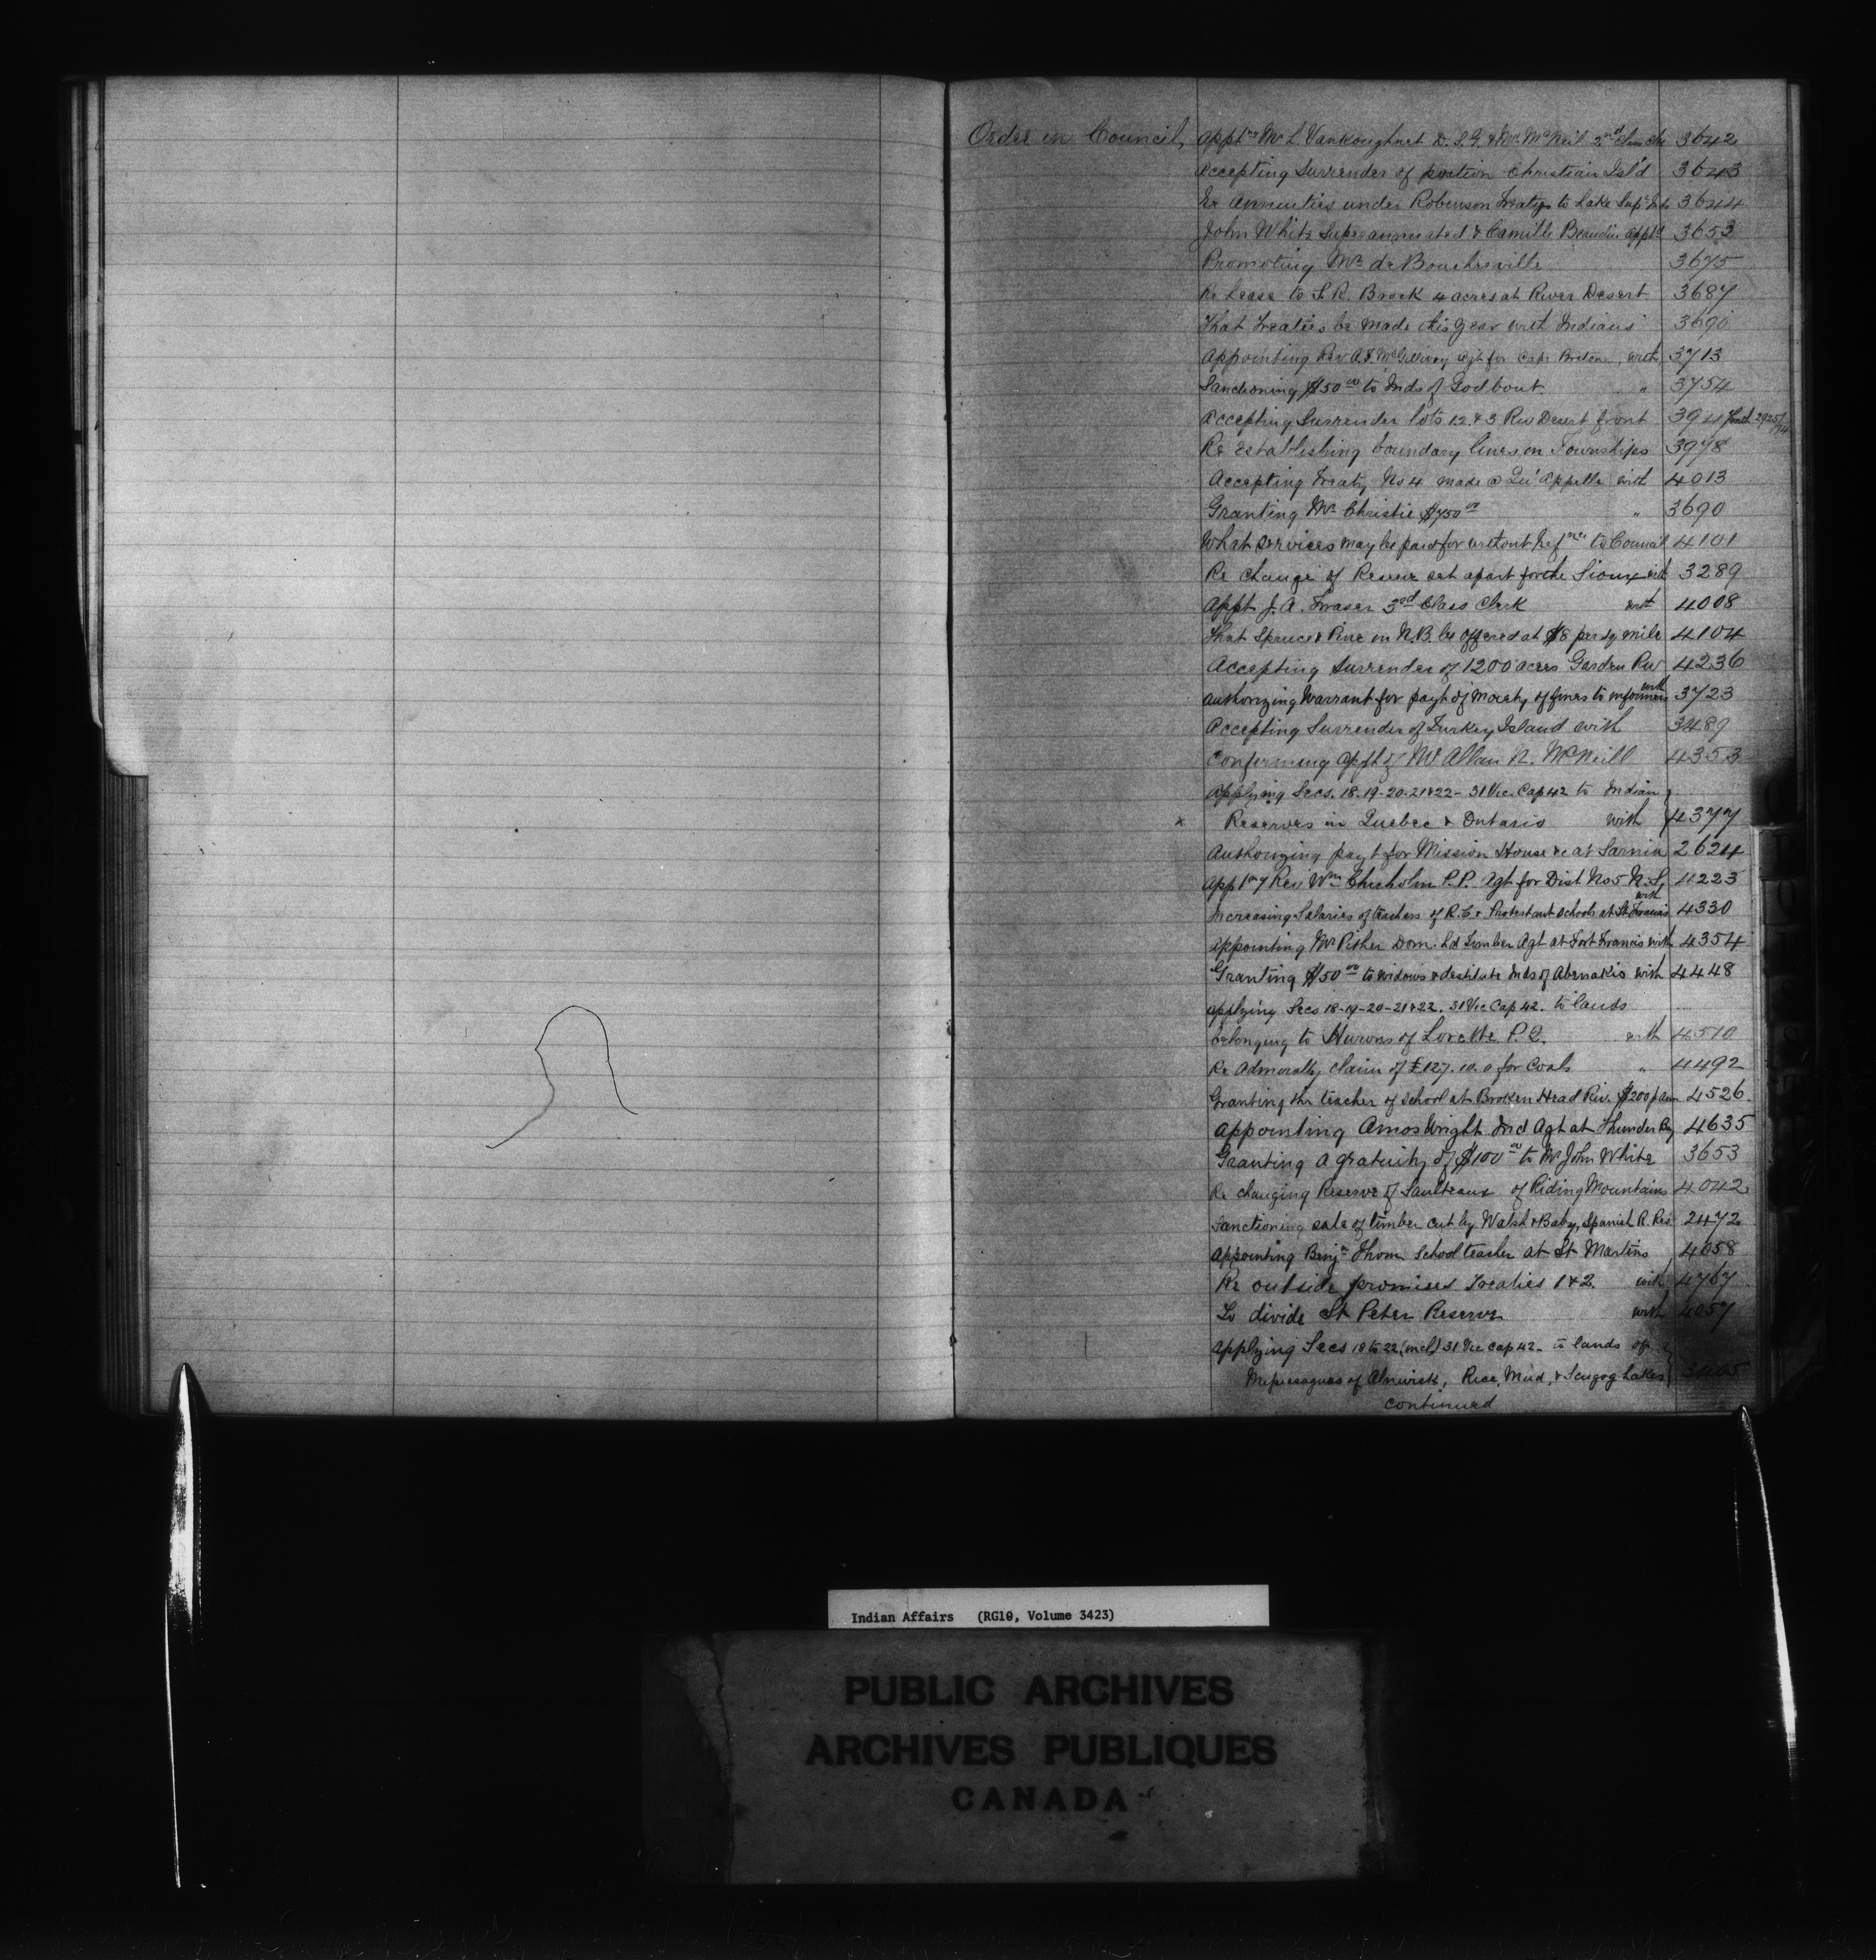 Order in Council, Appt^ng Mr L. Vankoughnet D.S.G. & Mr McNeil 2nd Class Clk 3642
Accepting Surrender of portion Christian Isl'd 3643
Re Annuities under Robinson Treaty to Lake Sup^r Inds 3644
John White Superannuated & Camille Beaudin appt^d 3653
Promoting Mr de Boucherville 3675
Re Lease to S. R. Brock 4 acres at River Desert 3687
That Treaties be made this year with Indians 3690
Appointing Rev A. F. McGillivray agt for Cape Breton, with 3713
Sanctioning $50 00 to Inds of Godbout " 3754
Accepting Surrender lots 1 2 & 3 Riv Desert front 3941 with 2925/74
Re establishing boundary lines on Townships 3978
Accepting Treaty No 4 made @ Qu'Appelle with 4013
Granting Mr Christie $750 00 " 3690
What services may be paid for without Ref^nce to Council 4101
Re change of Reserve set apart for the Sioux with 3289
Appt J. A. Fraser 3rd Class Clerk with 4008
That Spruce & Pine in N.B. be offered at $8 per sq mile 4104
Accepting Surrender of 1200 acres Garden Riv 4236
Authorizing Warrant for payt of Moiety of fines to informers with 3723
Accepting Surrender of Turkey Island with 3489
Confirming appt of Mr Allan N. McNeill 4353
Applying Secs. 18-19-20-21&22- 31 Vic. Cap 42 to Indian
x Reserves in Quebec & Ontario with 4377
Authorizing payt for Mission House &c at Sarnia 2624
App^t^ng Rev Wm Chisholm P.P. Agt for Dist No 5 N.S. with 4223
Increasing Salaries of teachers of R.C. & Protestant schools at St Francis 4330
Appointing Mr Pither Dom. Ld Timber Agt at Fort Francis with 4354
Granting $50 00 to widows & destitute Inds of Abenakis with 4448
Applying Secs 18-19-20-21&22. 31 Vic Cap 42. to lands
belonging to Hurons of Lorette P.Q. with 4510
Re Admiralty claim of £127.10.0 for Coals " 4492
Granting the teacher of school at Broken Head Riv. $200 p ann 4526
Appointing Amos Wright Ind Agt at Thunder Bay 4635
Granting a gratuity of $100 00 to Mr John White 3653
Re changing Reserve of Saulteaux of Riding Mountains 4042
Sanctioning sale of timber cut by Walsh & Baby, Spanish R. Res 2472
Appointing Benj^n Thom School teacher at St Martins 4658
Re outside promises Treaties 1 & 2 with 4767
To divide St Peter Reserve with 4057
Applying Secs 18 to 22 (incl) 31 Vic Cap 42- to lands of
Missisaguas of Alnwick, Rice, Mud, & Scugog Lakes
continued
Indian Affairs (RG10, Volume 3423)
PUBLIC ARCHIVES
ARCHIVES PUBLIQUES
CANADA